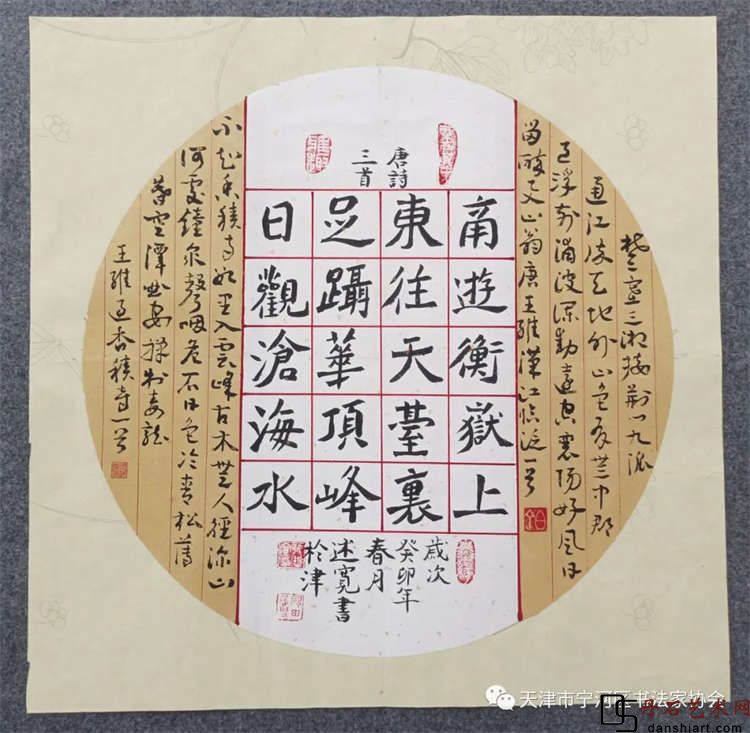 楚塞三湘接荊门九派
通江流天地外山色有無中郡
邑浮前浦波瀾動遠空襄陽好風日
留醉与山翁唐王維漢江臨泛一首
唐詩
三首
南遊衡嶽上
東往天臺裏
足躡華頂峰
日觀滄海水
歲次
癸卯年
春月
述寬書
於津
不知香積寺數里入雲峰古木無人徑深山
何處鐘泉聲咽危石日色冷青松薄
暮空潭曲安禪制毒龍
王維過香積寺一首
天津市宁河区书法家协会
丹石艺术网
danshiart.com